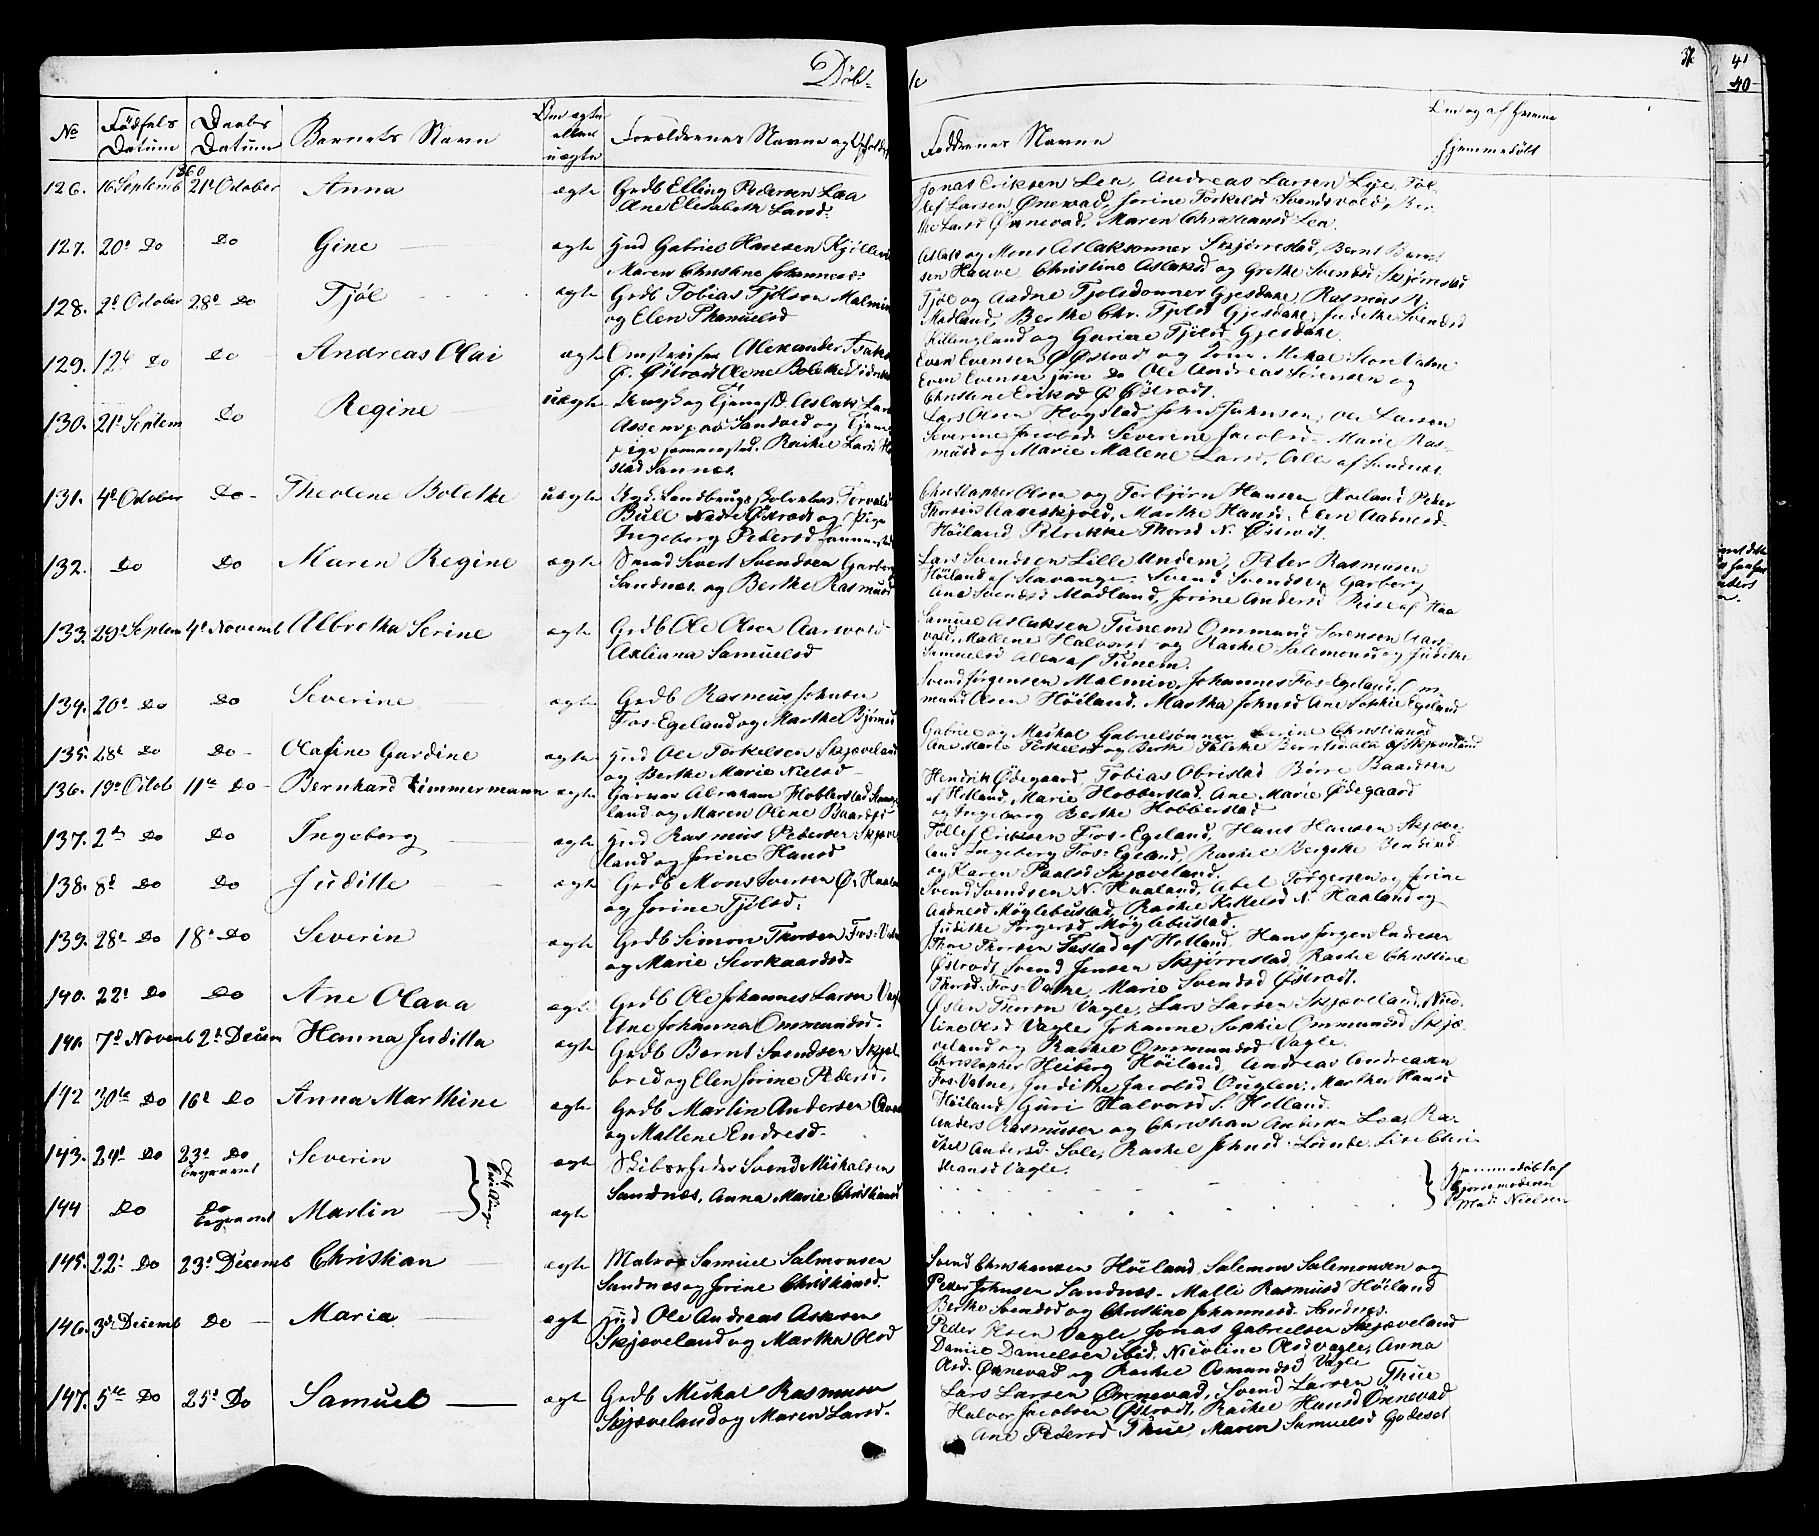 Döbte
38
41
40
No
Födsels Datum
Daabs Datum
Barnets Navn
Om ægte eller uægte
Foreldrenes Navne og Opholds
Faddernes Navne
Om og af hvem hjemmedöbt
1860
126. 16 Septemb 21d October Anna ægte Grdb Elling Pedersen Lea
Ane Elisabeth Larsd:
Jonas Eriksen Lea, Andreas Larsen Lye, Tol
lef Larsen Ønevad, Jorine Torkelsd Svendsvold, Ber
the Larsd Ønnevad, Maren Christiansd Lea.
127. 20d Do Do Gine ægte Hmd Gabriel Hansen Kjölle
Maren Christine Johannesd:
Aslak og Mons Aslaksönner Skjörrestad, Bernt Bernt
sen Hauve Christine Aslaksd og Grethe Svendsd Skjörrestad
128. 2d October 28d Do Tjöl ægte Grdb Tobias Tjölsen Malmin
og Elen Phanuelsd
Tjöl og Aadne Tjölsdönner Gjesdahl, Rasmus R.
Madland, Berthe Chr. Tjölsd Gjesdahl, Judithe Svendsd
Killingland og Guriae Tjölsd Gjesdahl.
129. 12te Do Do Andreas Olai ægte Alexander Isaks
Ø. Østraat Olene Bolethe
Even Evensen Ø Østraat og Tone Mikal Store Vatne
Even Evensen jun Do Ole Andreas Sörensen og
Christine Eriksd Ø Østrodt.
130. 21d Septem Do Regine uægte Ungk og Tjenestd. Aslak Lar
Sandved og Tjene
pige sammested. Rachel Larsd Ho
stad Sannes.
Lars Olsen Hogstad, John Johnsen, Ole Larsen
Severine Jacobsd Severine Jacobsd. Marie Ras-
musd og Marie Malene Larsd, Alle af Sandnes.
131. 4d October Do Theoline Bolethe uægte Ugd. Landbrugs Torvald
Bull Nedre Østradt og Pige
Ingeborg Pedersd sammested
Christopher Olsen og Torbjörn Hansen Höiland Peder
Thorsen Aareskjold, Marthe Hansd. Elen Aadnesd.
Höiland Petrikke Thorsd N. Østrodt.
132. Do Do Maren Regine ægte Smed Sivert Svendsen Garborg
Sandnæs og Berthe Rasmusd
Lars Svendsen Lille Undem, Peter Rasmusen
Höiland af Stavanger, Svend Svendsen Garborg
Ane Svendsd Madland, Jorine Andersd Riise af Haa
133. 29d Septem 4d Novemb Albretha Serine ægte Grdb Ole Olsen Aarsvold
Axliana Samuelsd
Samuel Aslaksen Tunem Ommund Sorensen Aars
vold, Mallene Halvorsd og Rachel Salemonsd og Judithe
Samuelsd Alle af Tunem.
134. 20d Do Do Severine ægte Grdb Rasmus Johnsen
Fos-Egeland og Marthe Björnsd
Svend Jörgensen Malmin, Johannes Fos-Egeland, Om
mund Olsen Höiland. Martha Johnsd Ane Sophie Egeland
135. 28d Do Do Olafine Gurdine ægte Hmd Ole Torkelsen Skjæveland
og Berthe Marie Nielsd
Gabriel og Michal Gabrielsönner Serine Christiansd
Ane Marta Torkelsd og Berth Talette Berntsdala af Skjæveland
136. 19d Octob 11te Do Bernhard Zimmermann ægte Garver Abraham Hobberstad
land og Maren Olene Baardsd
Hendrik Ødegaard Tobias Obristad Börre Baardsen
af Hetland, Marie Hobberstad, Ane Marie Ødegaard
og Ingeborg Berthe Hobberstad
137. 2d Do Do Ingeborg ægte Hmd Rasmus Pedersen Skjæve
land og Jorine Hansd
Tollef Eriksen Fos-Egeland, Hans Hansen Skjæve-
land Ingeborg Fos-Egeland, Rachel Bergethe
og Karen Paalsd Skjæveland.
138. 8d Do Do Juditte ægte Grdb Mons Iversen Ø. Haaland
og Jorine Tjölsd:
Svend Svendsen N. Haaland, Abel Torgersen og Jorine
Aadnesd Möglebustad, Rachel Kittelsd N. Haaland og
Judithe Torgersd Möglebustad.
139. 28d Do 18d Do Severin ægte Grdb Simon Thorsen Fos-Vatne
og Marie Storkaardsd.
Thore Thorsen Tastad af Hetland, Hans Jorgen Endresen
Østrodt, Svend Jensen Skjörrestad Rachel Christine
Thorsd. Fos-Vatne, Marie Svendsd Østrodt.
140. 22d Do Do Ane Olava ægte Grdb Ole Johannes Larsen Vagle
Ane Johanna Ommundsd.
Østen Thorsen Vagle, Lars Larsen Skjæveland, Nico-
line Olsd Vagle, Johanne Sophie Ommundsd Skjæ-
veland og Rachel Ommundsd Vagle.
141. 7d Novemb 2d Decem Hanna Juditta ægte Grdb Bernt Svendsen Skjel
bred og Elen Jorine Pedersd.
Christopher Heiberg Höiland, Andreas Andreasen
Fos-Vatne, Judithe Jacobsd Øuglen, Marthe Hansd
Höiland, Guri Halvorsd S. Hetland.
142 30te Do 16d Do Anna Marthine ægte Grdb Martin Andersen
og Mallene Endresd.
Anders Rasmusen og Christian Andersen Lea, Ra-
chel Andersd Sole, Rachel Johnsd Lunde, Lise Chri-
stiansd Vagle.
143. 24d Do 23d Do begravet Severin ægte Skibsreder Svend Michalsen
Sandnæs, Anna Marie Christiansd
144 Do Do begravet Martin ægte
Tvillinger
Hjemmedöbt af
Gjordemoderen
Mad: Nielsen
145. 22d Do 23d Decemb Christian ægte Matros Samuel Salmonsen
Sandnæs og Jorine Christiansd.
Svend Christiansen Höiland, Salemon Salemonsen og
Peder Johnsen Sandnes. Malli Rasmusd Höiland
Berthe Svendsd og Christine Johannesd. Sandnes.
146. 3d Decemb Do Maria ægte Hmd Ole Andreas Assersen
Skjæveland og Martha Olsd
Peder Olsen Vagle, Jonas Gabrielsen Skjæveland
Daniel Danielsen ibid. Nicoline Olsd Vagle, Anna
Olsd. Ønnevad og Rachel Osmundsd Vagle
147. 5te Do 25d Do Samuel ægte Grdb Michal Rasmusen
Skjæveland og Maren Larsd.
Lars Larsen Ønnevad, Svend Larsen Thue
Halvor Jacobsen Østrodt, Rachel Hansd Ønnevad
Ane Pedersd Thue, Maren Samuelsd Godeset